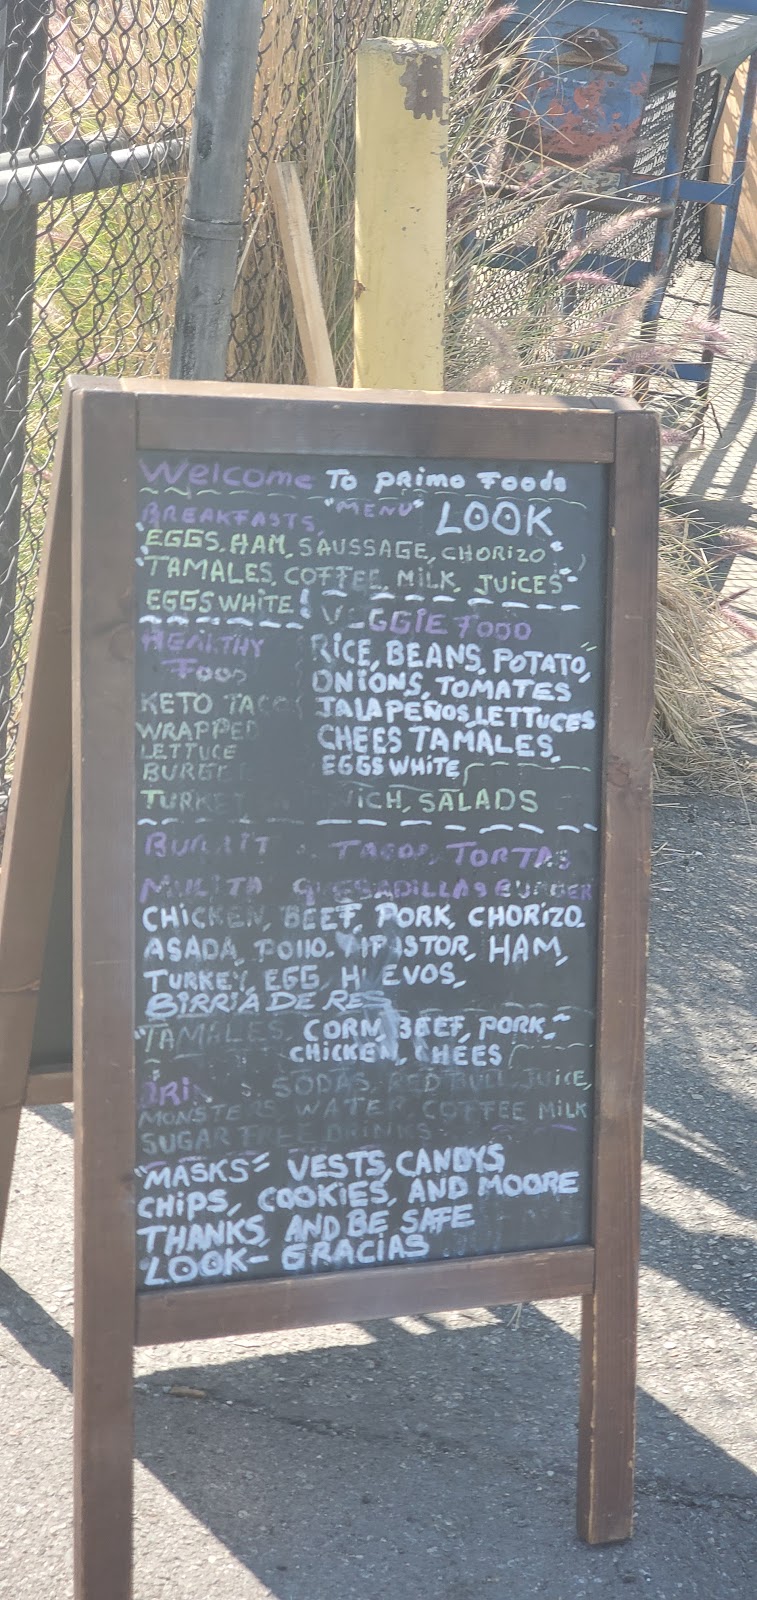 Welcome To PRIMO FOODS
"MENU" LOOK
BREAKFASTS,
"EGGS. HAM, SAUSSAGE, CHORIZO"
"TAMALES, COFFEE, MILK, JUICES"
EGGS WHITE!
VEGGIE FOOD
HEALTHY
FOOD
RICE, BEANS, POTATO,
ONIONS, TOMATES
JALAPEÑOS, LETTUCES
CHEES TAMALES,
EGGS WHITE,
KETO TACOS
WRAPPED
LETTUCE
BURGE
TURKEY SANDWICH, SALADS
BURRITOS TACOS, TORTAS
MULITA QUESADILLAS BURGER
CHICKEN, BEEF, PORK, CHORIZO.
ASADA, POLLO. ALPASTOR, HAM,
TURKEY, EGG, HUEVOS,
BIRRIA DE RES
"TAMALES, CORN, BEEF, PORK,"
CHICKEN, CHEES
DRINKS, SODAS, RED BULL, JUICE,
MONSTERS, WATER, COFFEE MILK
SUGAR FREE DRINKS
"MASKS" VESTS, CANDYS
CHIPS, COOKIES, AND MOORE
THANKS, AND BE SAFE
LOOK- GRACIAS